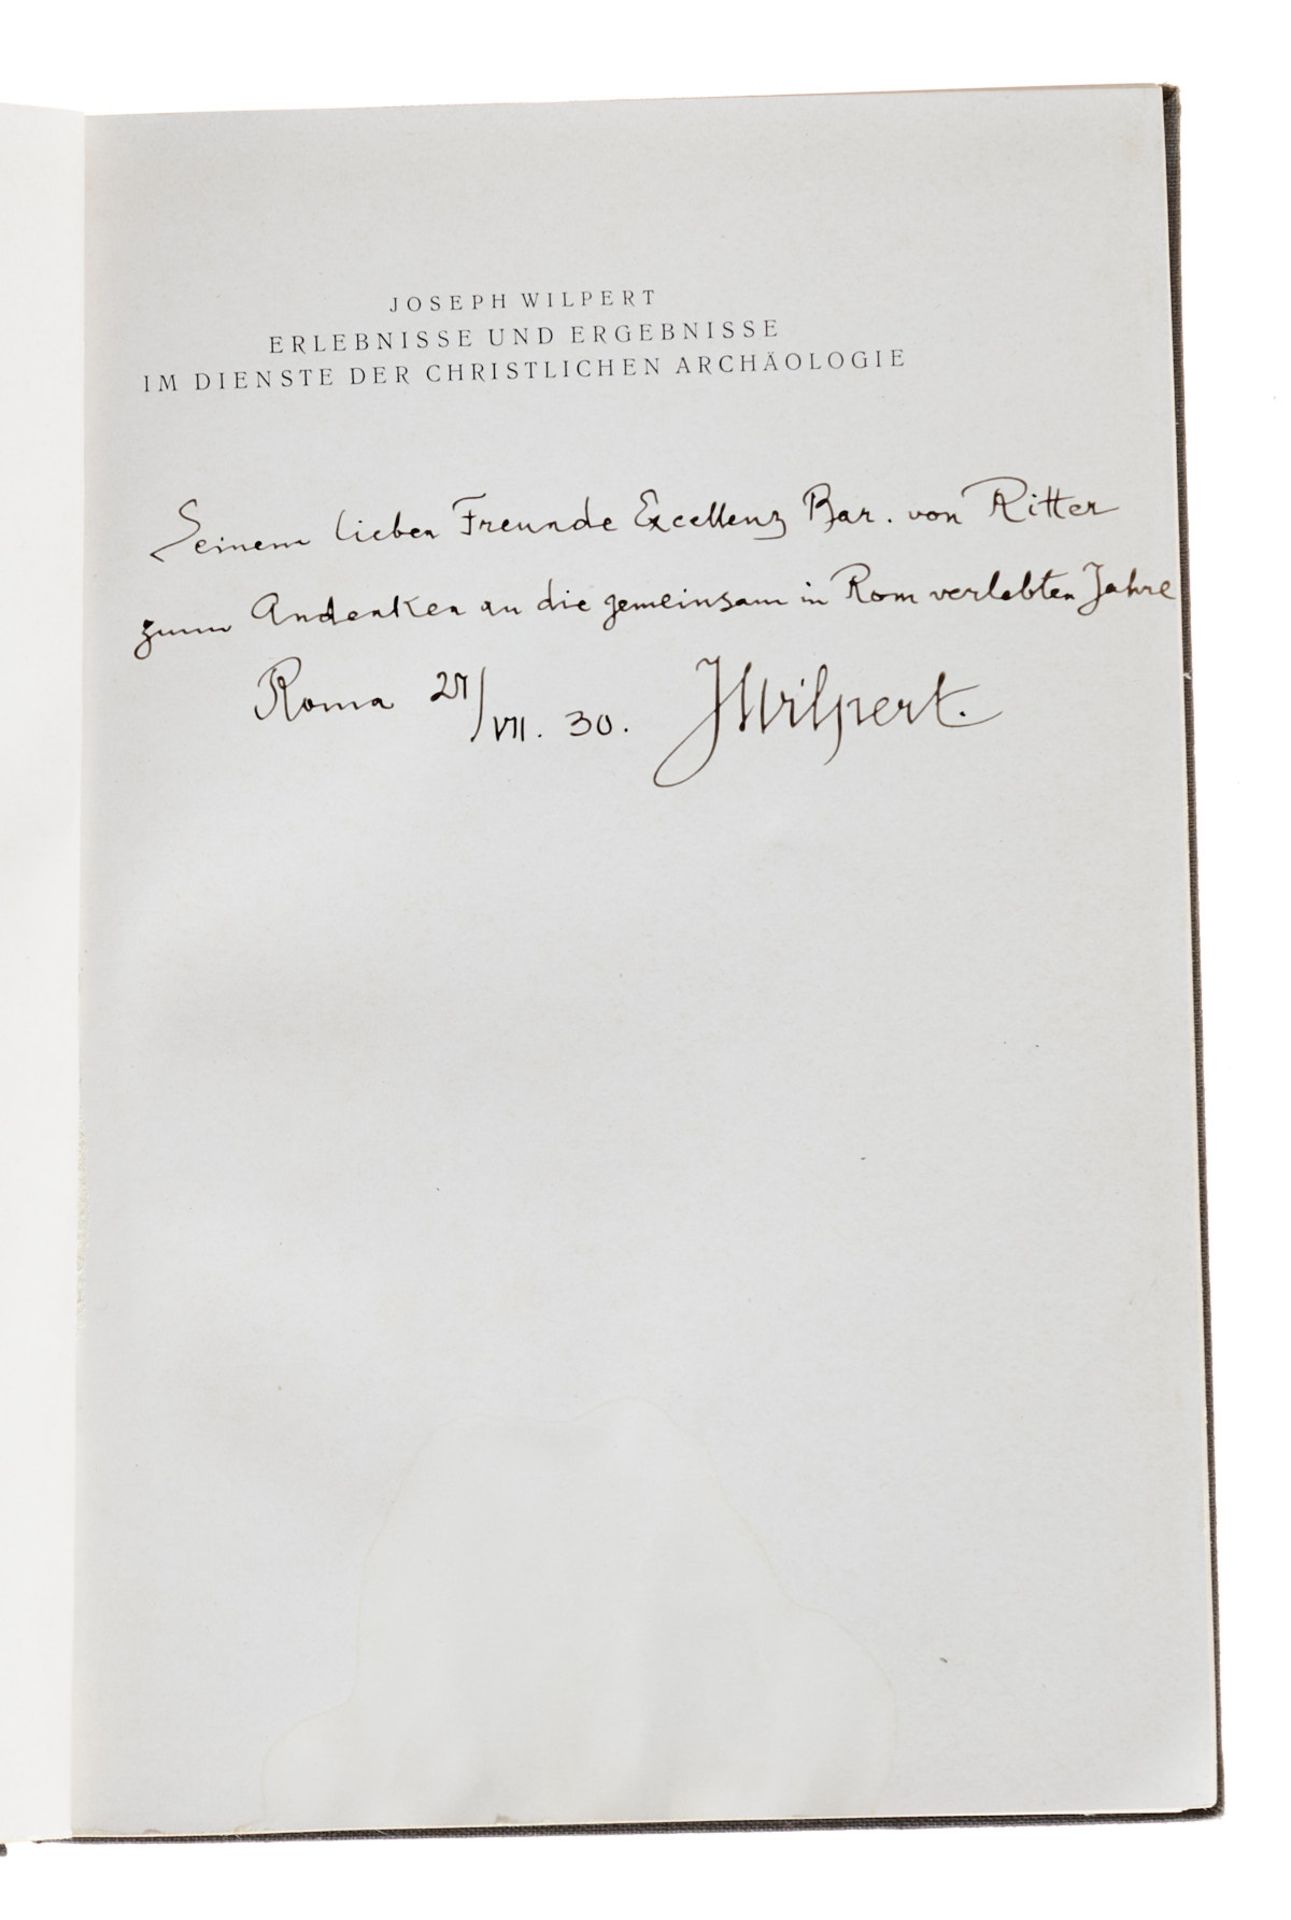 JOSEPH WILPERT
ERLEBNISSE UND ERGEBNISSE
IM DIENSTE DER CHRISTLICHEN ARCHÄOLOGIE
Seinem lieben Freunde Excellenz Bar. von Ritter
zum Andenken an die gemeinsam in Rom verlebten Jahre
Roma /VII. 30. JWilpert.